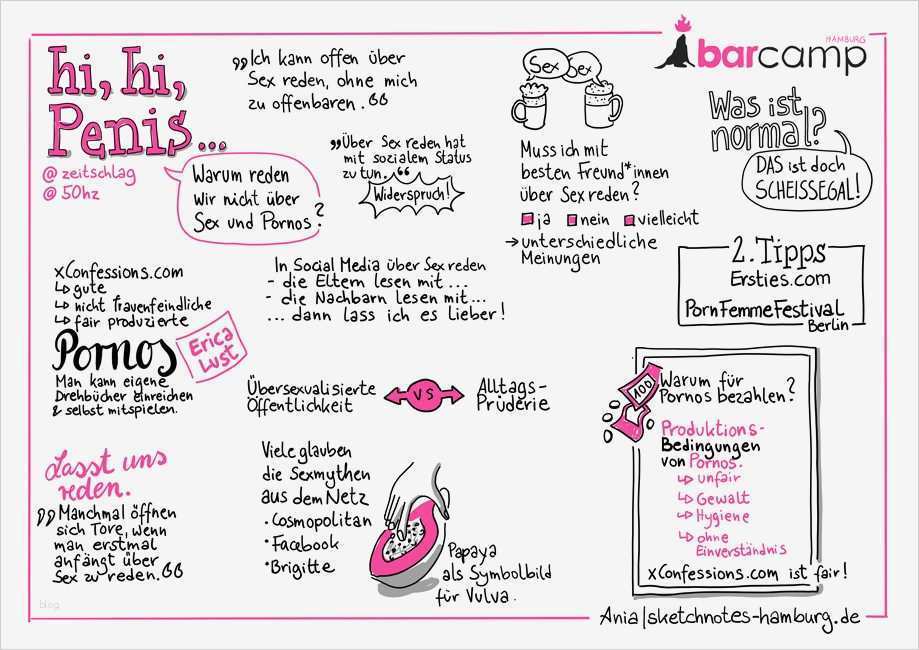 hi, hi,
Penis...
@ zeitschlag
@ 50hz
Warum reden
Wir nicht über
Sex und Pornos?
"Ich kann offen über
Sex reden, ohne mich
zu offenbaren."
"Über Sex reden hat
mit sozialem Status
zu tun."
Widerspruch!
Sex
Sex
Muss ich mit
besten Freund*innen
über Sex reden?
ja nein vielleicht
→ unterschiedliche
Meinungen
HAMBURG
barcamp
Was ist
normal?
DAS ist doch
SCHEISSEGAL!
2. Tipps
Ersties.com
PornFemmeFestival
Berlin
xConfessions.com
↳ gute
↳ nicht frauenfeindliche
↳ fair produzierte
Pornos
Erica
Lust
Man kann eigene
Drehbücher einreichen
& selbst mitspielen.
In Social Media über Sex reden
- die Eltern lesen mit...
- die Nachbarn lesen mit...
... dann lass ich es lieber!
Übersexualisierte
Öffentlichkeit
VS
Alltags-
Prüderie
Lasst uns
reden.
"Manchmal öffnen
sich Tore, wenn
man erstmal
anfängt über
Sex zu reden."
Viele glauben
die Sexmythen
aus dem Netz
· Cosmopolitan
• Facebook
• Brigitte
Papaya
als Symbolbild
für Vulva.
100
Warum für
Pornos bezahlen?
Produktions-
Bedingungen
von Pornos.
↳ unfair
↳ Gewalt
↳ Hygiene
↳ ohne
Einverständnis
xConfessions.com ist fair!
blog
Ania|sketchnotes-hamburg.de